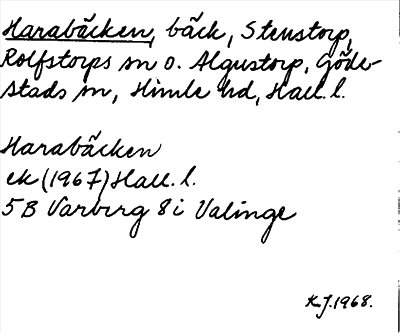 Harabäcken, bäck, Stenstorp,
Rolfstorps sn o. Algustorp, Göde-
stads sn, Himle hd, Hall. l.
Harabäcken
ek (1967) Hall. l.
5 B Varberg 8 i Valinge
K.J. 1968.